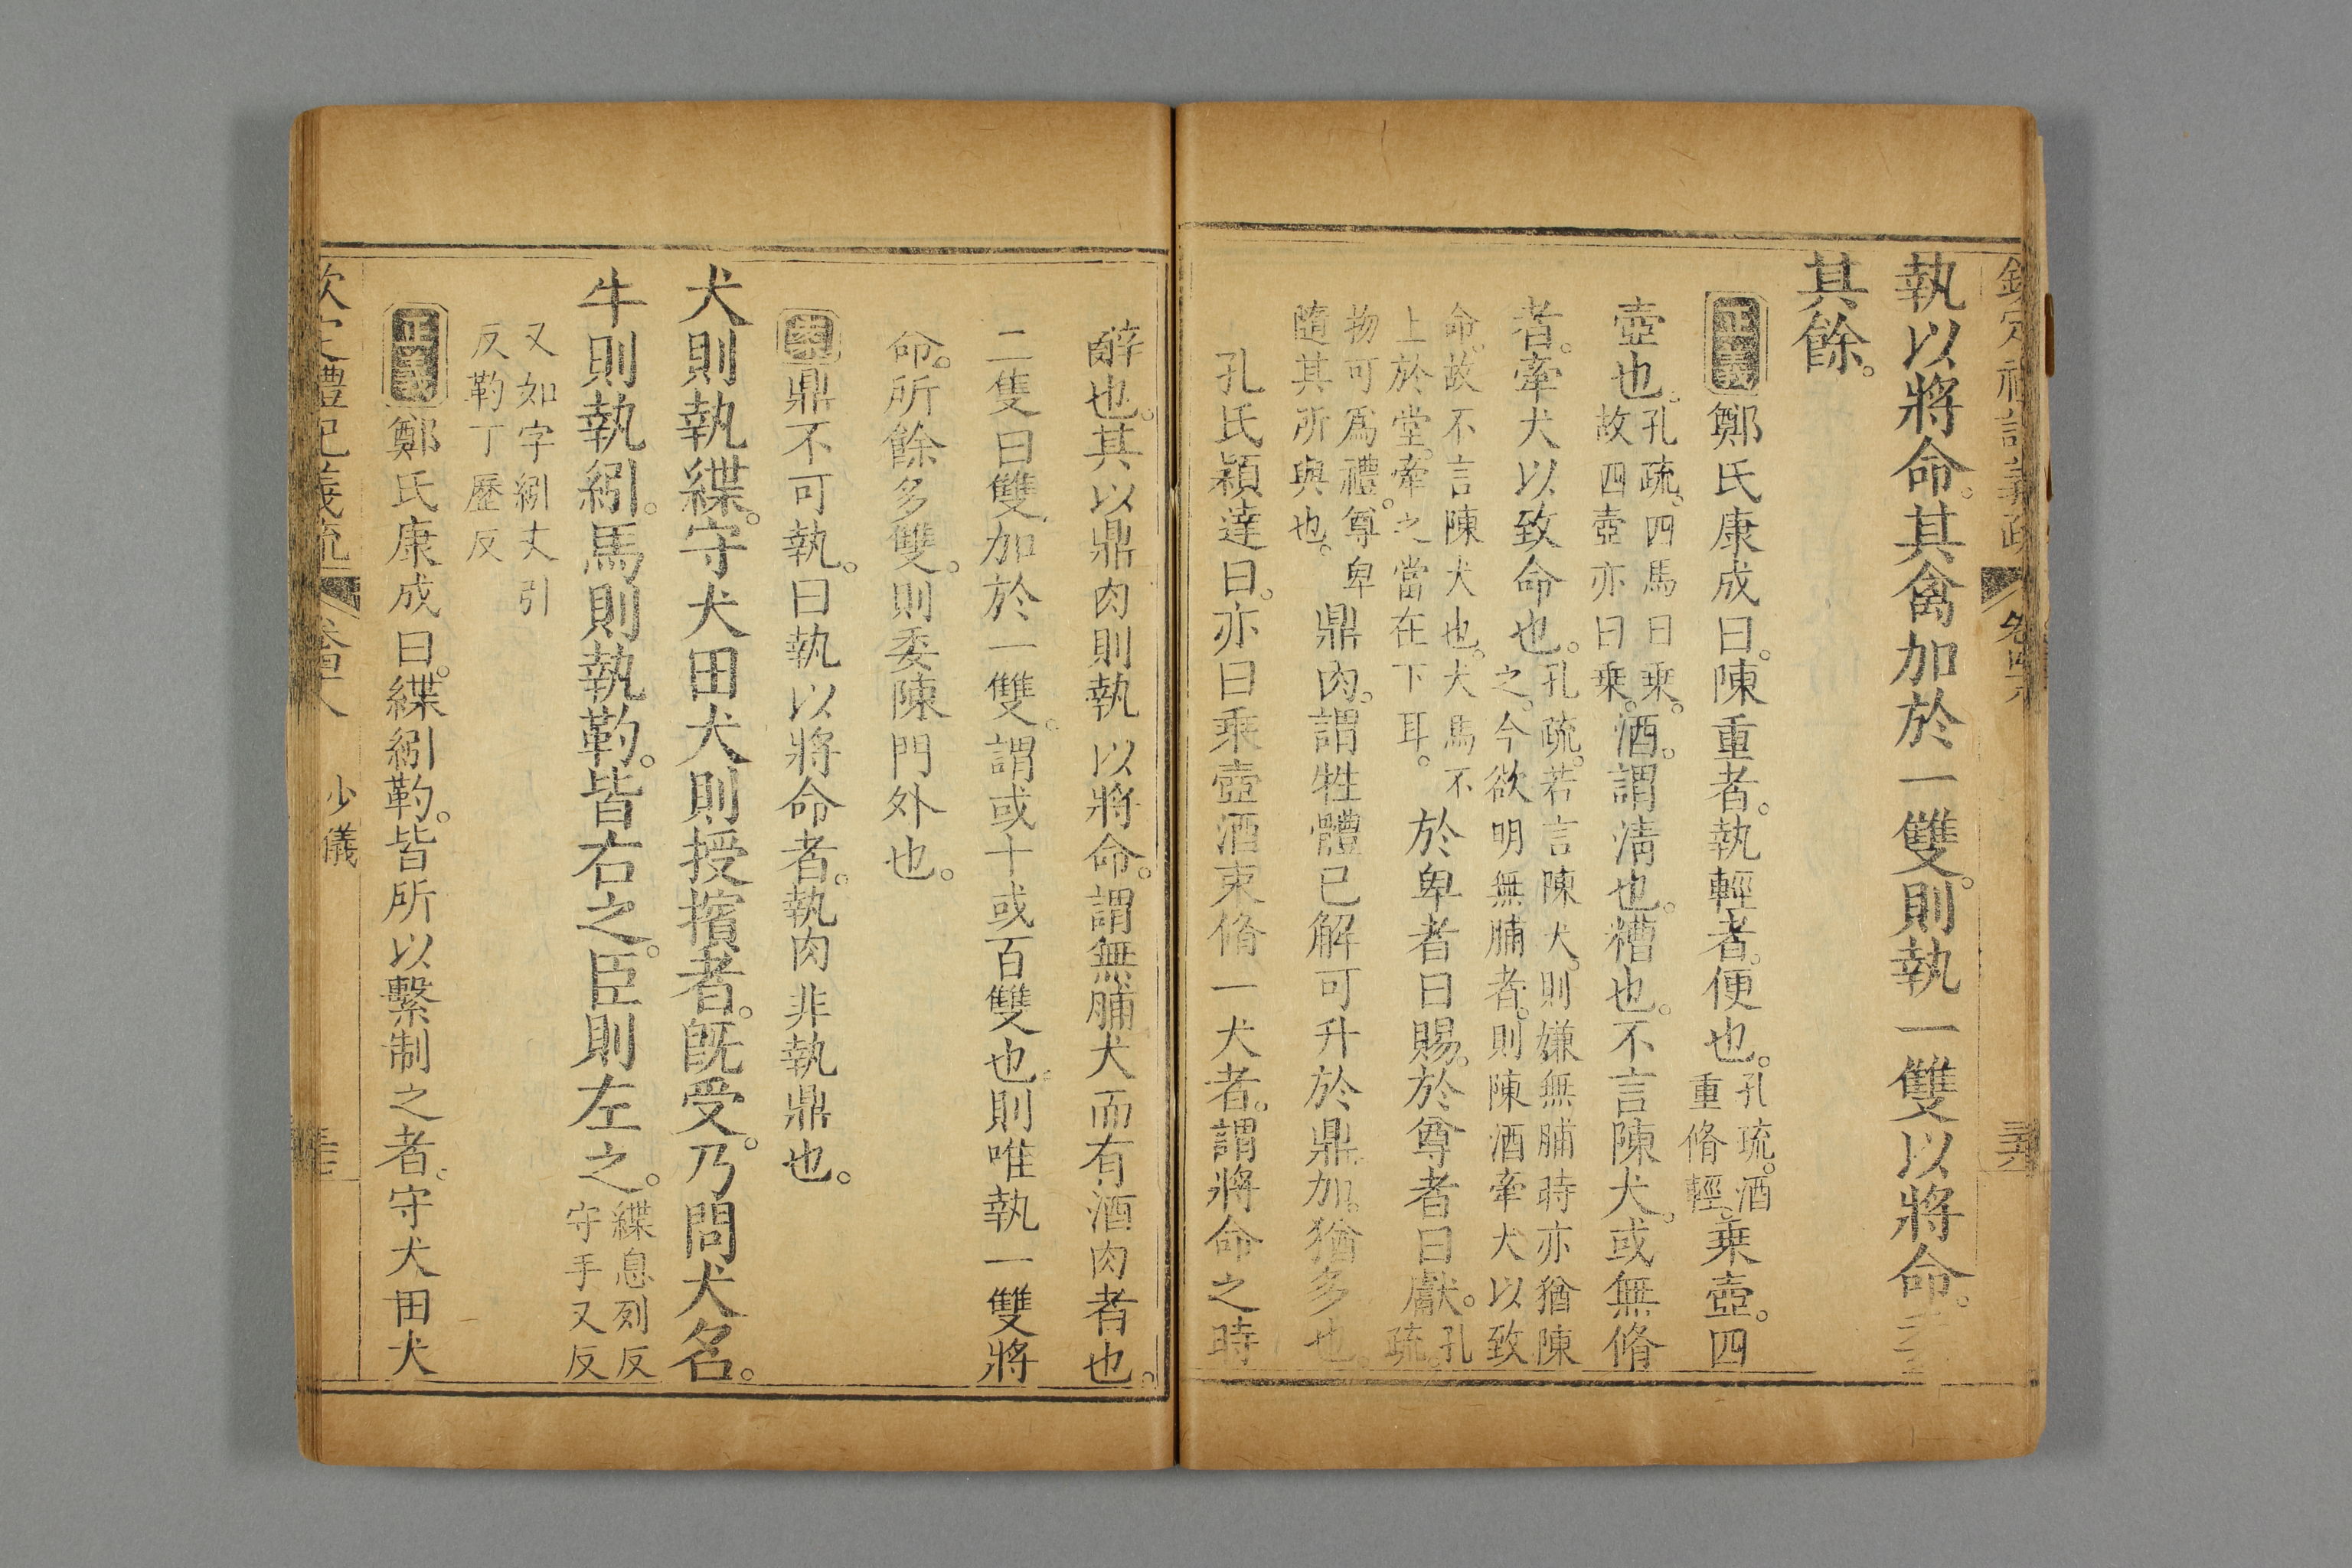 執以將命。其禽加於一雙。則執一雙以將命。委
其餘。
正義 鄭氏康成曰。陳重者。執輕者。便也。孔疏。酒重脩輕。乘壺。四
壺也。孔疏。四馬曰乘。故四壺亦曰乘。酒。謂淸也。糟也。不言陳犬。或無脩
者。牽犬以致命也。孔疏。若言陳犬。則嫌無脯時亦猶陳之。今欲明無脯者。則陳酒牽犬以致
命。故不言陳犬也。犬馬不上於堂。牽之當在下耳。於卑者曰賜。於尊者曰獻。孔疏。
物可爲禮。尊卑隨其所與也。鼎肉。謂牲體已解可升於鼎。加。猶多也。
孔氏穎達曰。亦曰乘壺酒束脩一犬者。謂將命之時
辭也。其以鼎肉則執以將命。謂無脯犬而有酒肉者也。
二隻曰雙。加於一雙。謂或十或百雙也。則唯執一雙將
命。所餘多雙。則委陳門外也。
案 鼎不可執。曰執以將命者。執肉非執鼎也。
犬則執緤。守犬田犬則授擯者。旣受。乃問犬名。
牛則執紖。馬則執靮。皆右之。臣則左之。緤息列反守手又反
又如字紖丈引反靮丁歷反
正義 鄭氏康成曰。緤紖靮。皆所以繫制之者。守犬田犬
少儀